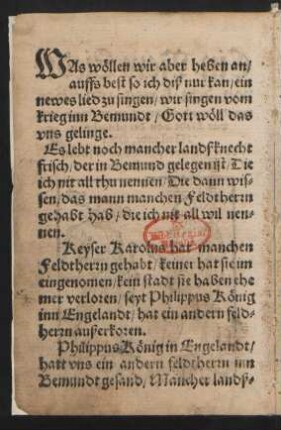 WAs wöllen wir aber heben an/
auffs best so ich diß nur kan/ein
newes lied zu singen/wir singen vom
krieg inn Bemundt/Gott wöll das
vns gelinge.
Es lebt noch mancher landsknecht
frisch/der in Bemund gelegen ist. Die
ich nit all thu nennen/Die dann wis-
sen/das mann manchen Feldtherrn
gehabt hab/die ich nit all wil nen-
nen.
Keyser Karolus hat manchen
Feldtherrn gehabt/keiner hat sie inn
eingenomen/kein stadt sie haben ehe
mer verloren/seyt Philippus König
inn Engelandt/hat ein andern feld-
herrn außerkoren.
Philippus König in Engelandt/
hatt vns ein andern feldtherrn inn
Bemundt gesand/Mancher landß-